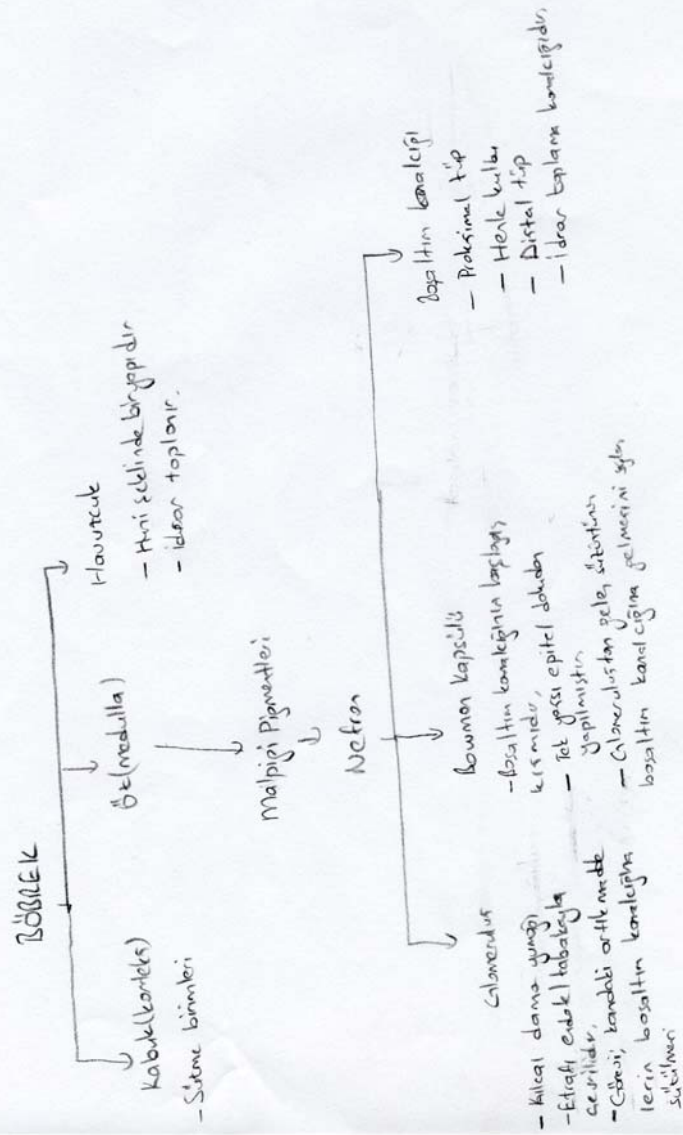 BÖBREK
Kabuk(korteks)
- Süzme birimleri
Öz(medulla)
Havuzcuk
- Huni şeklinde bir yapıdır
- idrar toplanır.
Malpigi Pigmentleri
Nefron
Glomerulus
- Kılcal damar yumağı
- Etrafı endotel tabakayla
çevrilidir.
- Görevi; kandaki artık madde
lerin boşaltım kanalcığına
süzülmesi
Bowman kapsülü
- Boşaltım kanalcığının başlangıç
kısmıdır.
- Tek yassı epitel dokudan
yapılmıştır.
- Glomerulustan gelen süzüntünün
boşaltım kanalcığına gelmesini sağlar.
Boşaltım kanalcığı
- Proksimal tüp
- Henle kulbu
- Distal tüp
- İdrar toplama kanalcığıdır.